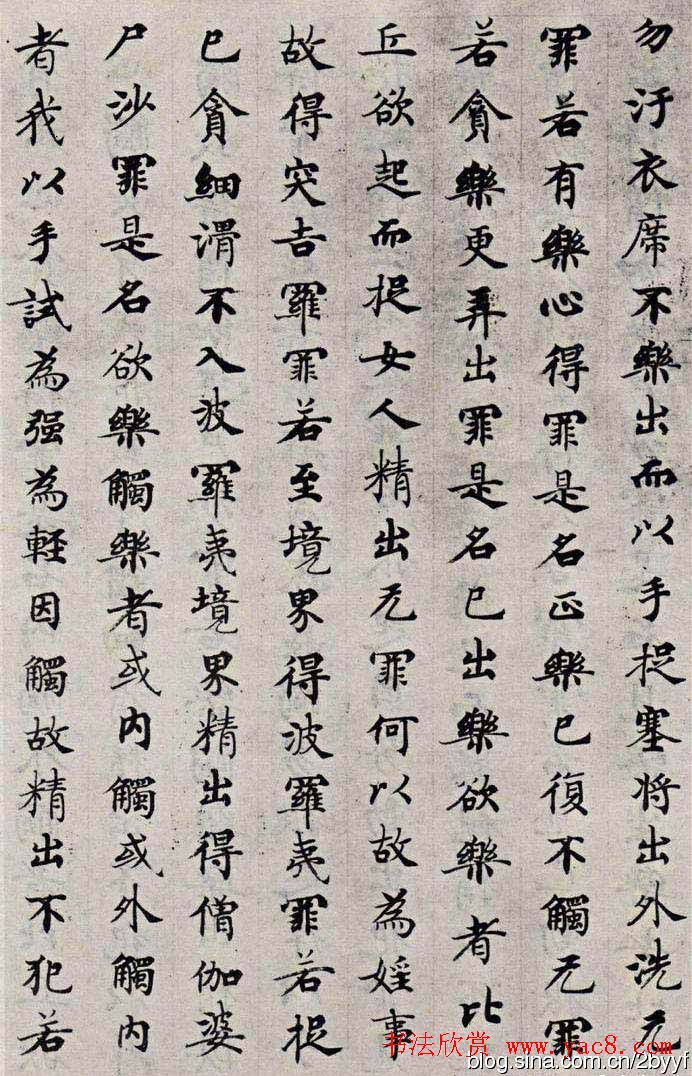 勿汙衣席不樂出而以手捉塞将出外洗无
罪若有樂心得罪是名正樂已復不觸无罪
若貪樂更弄出罪是名已出樂欲樂者比
丘欲起而捉女人精出无罪何以故為婬事
故得突吉羅罪若至境界得波羅夷罪若捉
已貪細滑不入波羅夷境界精出得僧伽婆
尸沙罪是名欲樂觸樂者或内觸或外觸内
者我以手試為强為軽因觸故精出不犯若
书法欣赏 www.yac8.com
blog.sina.com.cn/2byyf